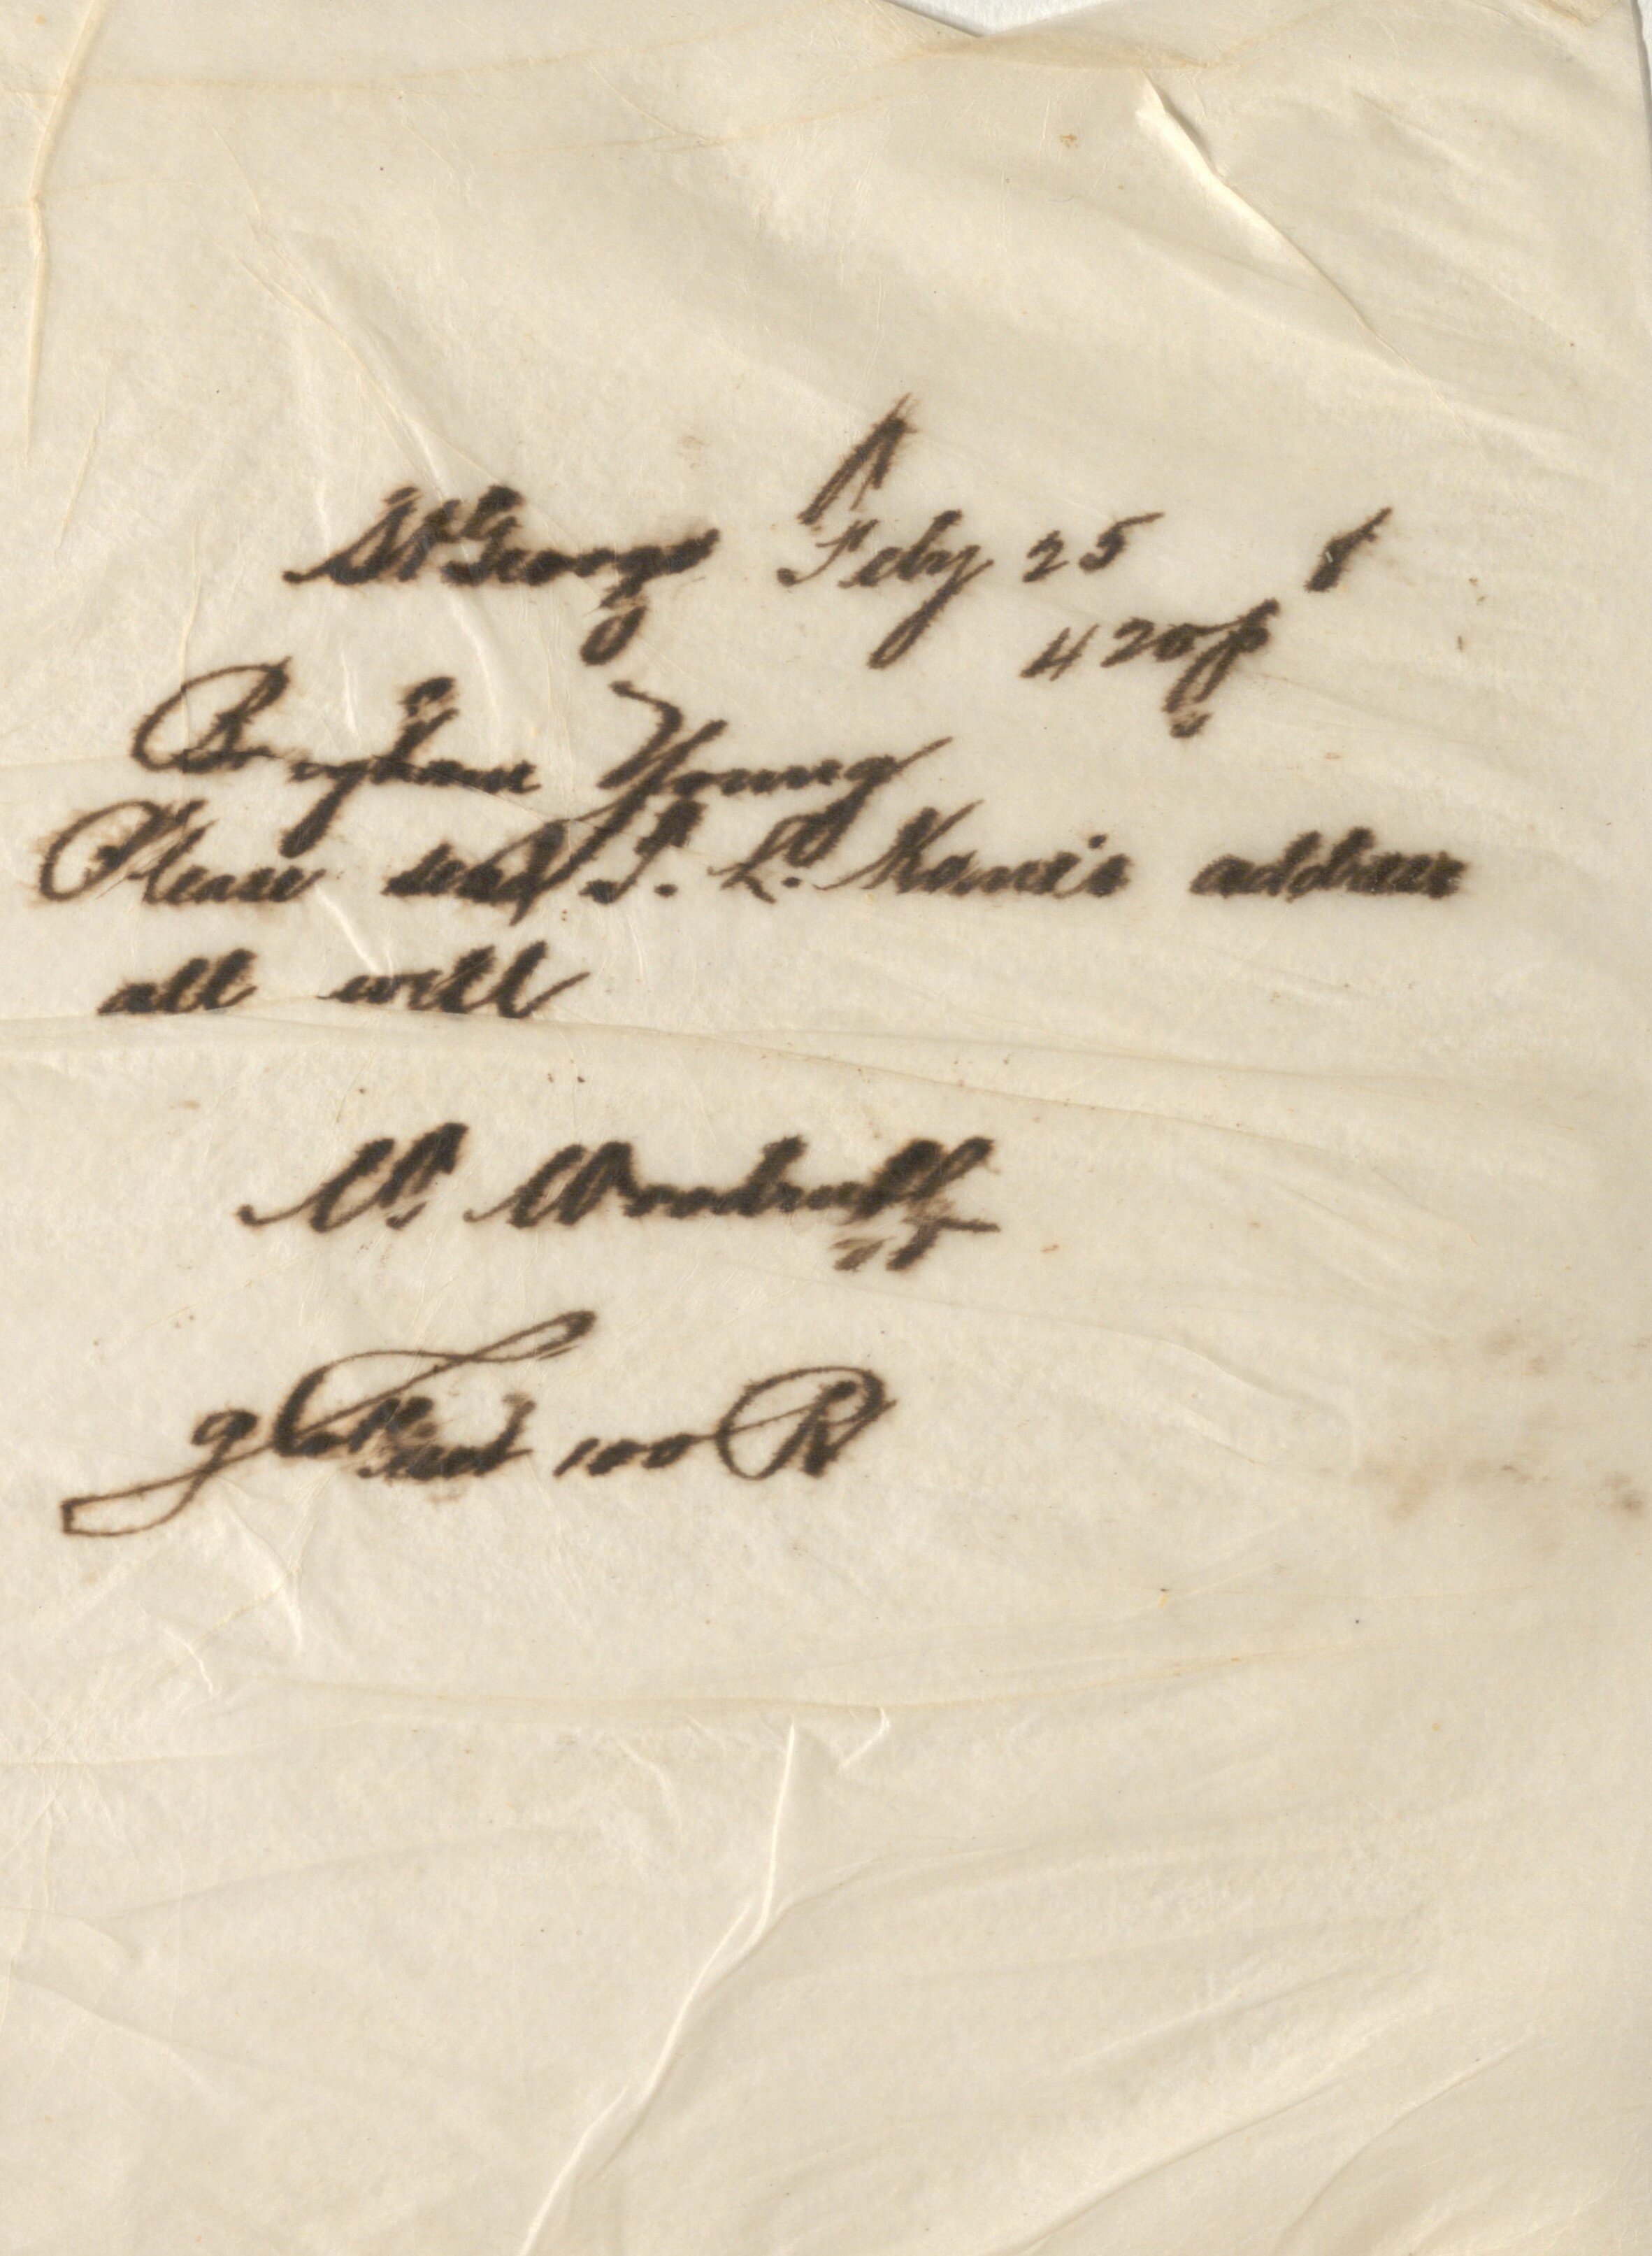 St George Feby 25 8
4 20 p
Brigham Young
Please send T. L. Kane's address
all well
W. Woodruff
9 Paid 100 R